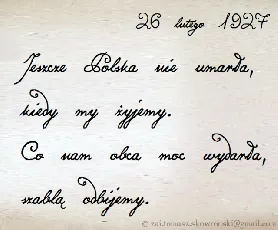 26 lutego 1927
Jeszcze Polska nie umarła,
kiedy my żyjemy.
Co nam obca moc wydarła,
szablą odbijemy.